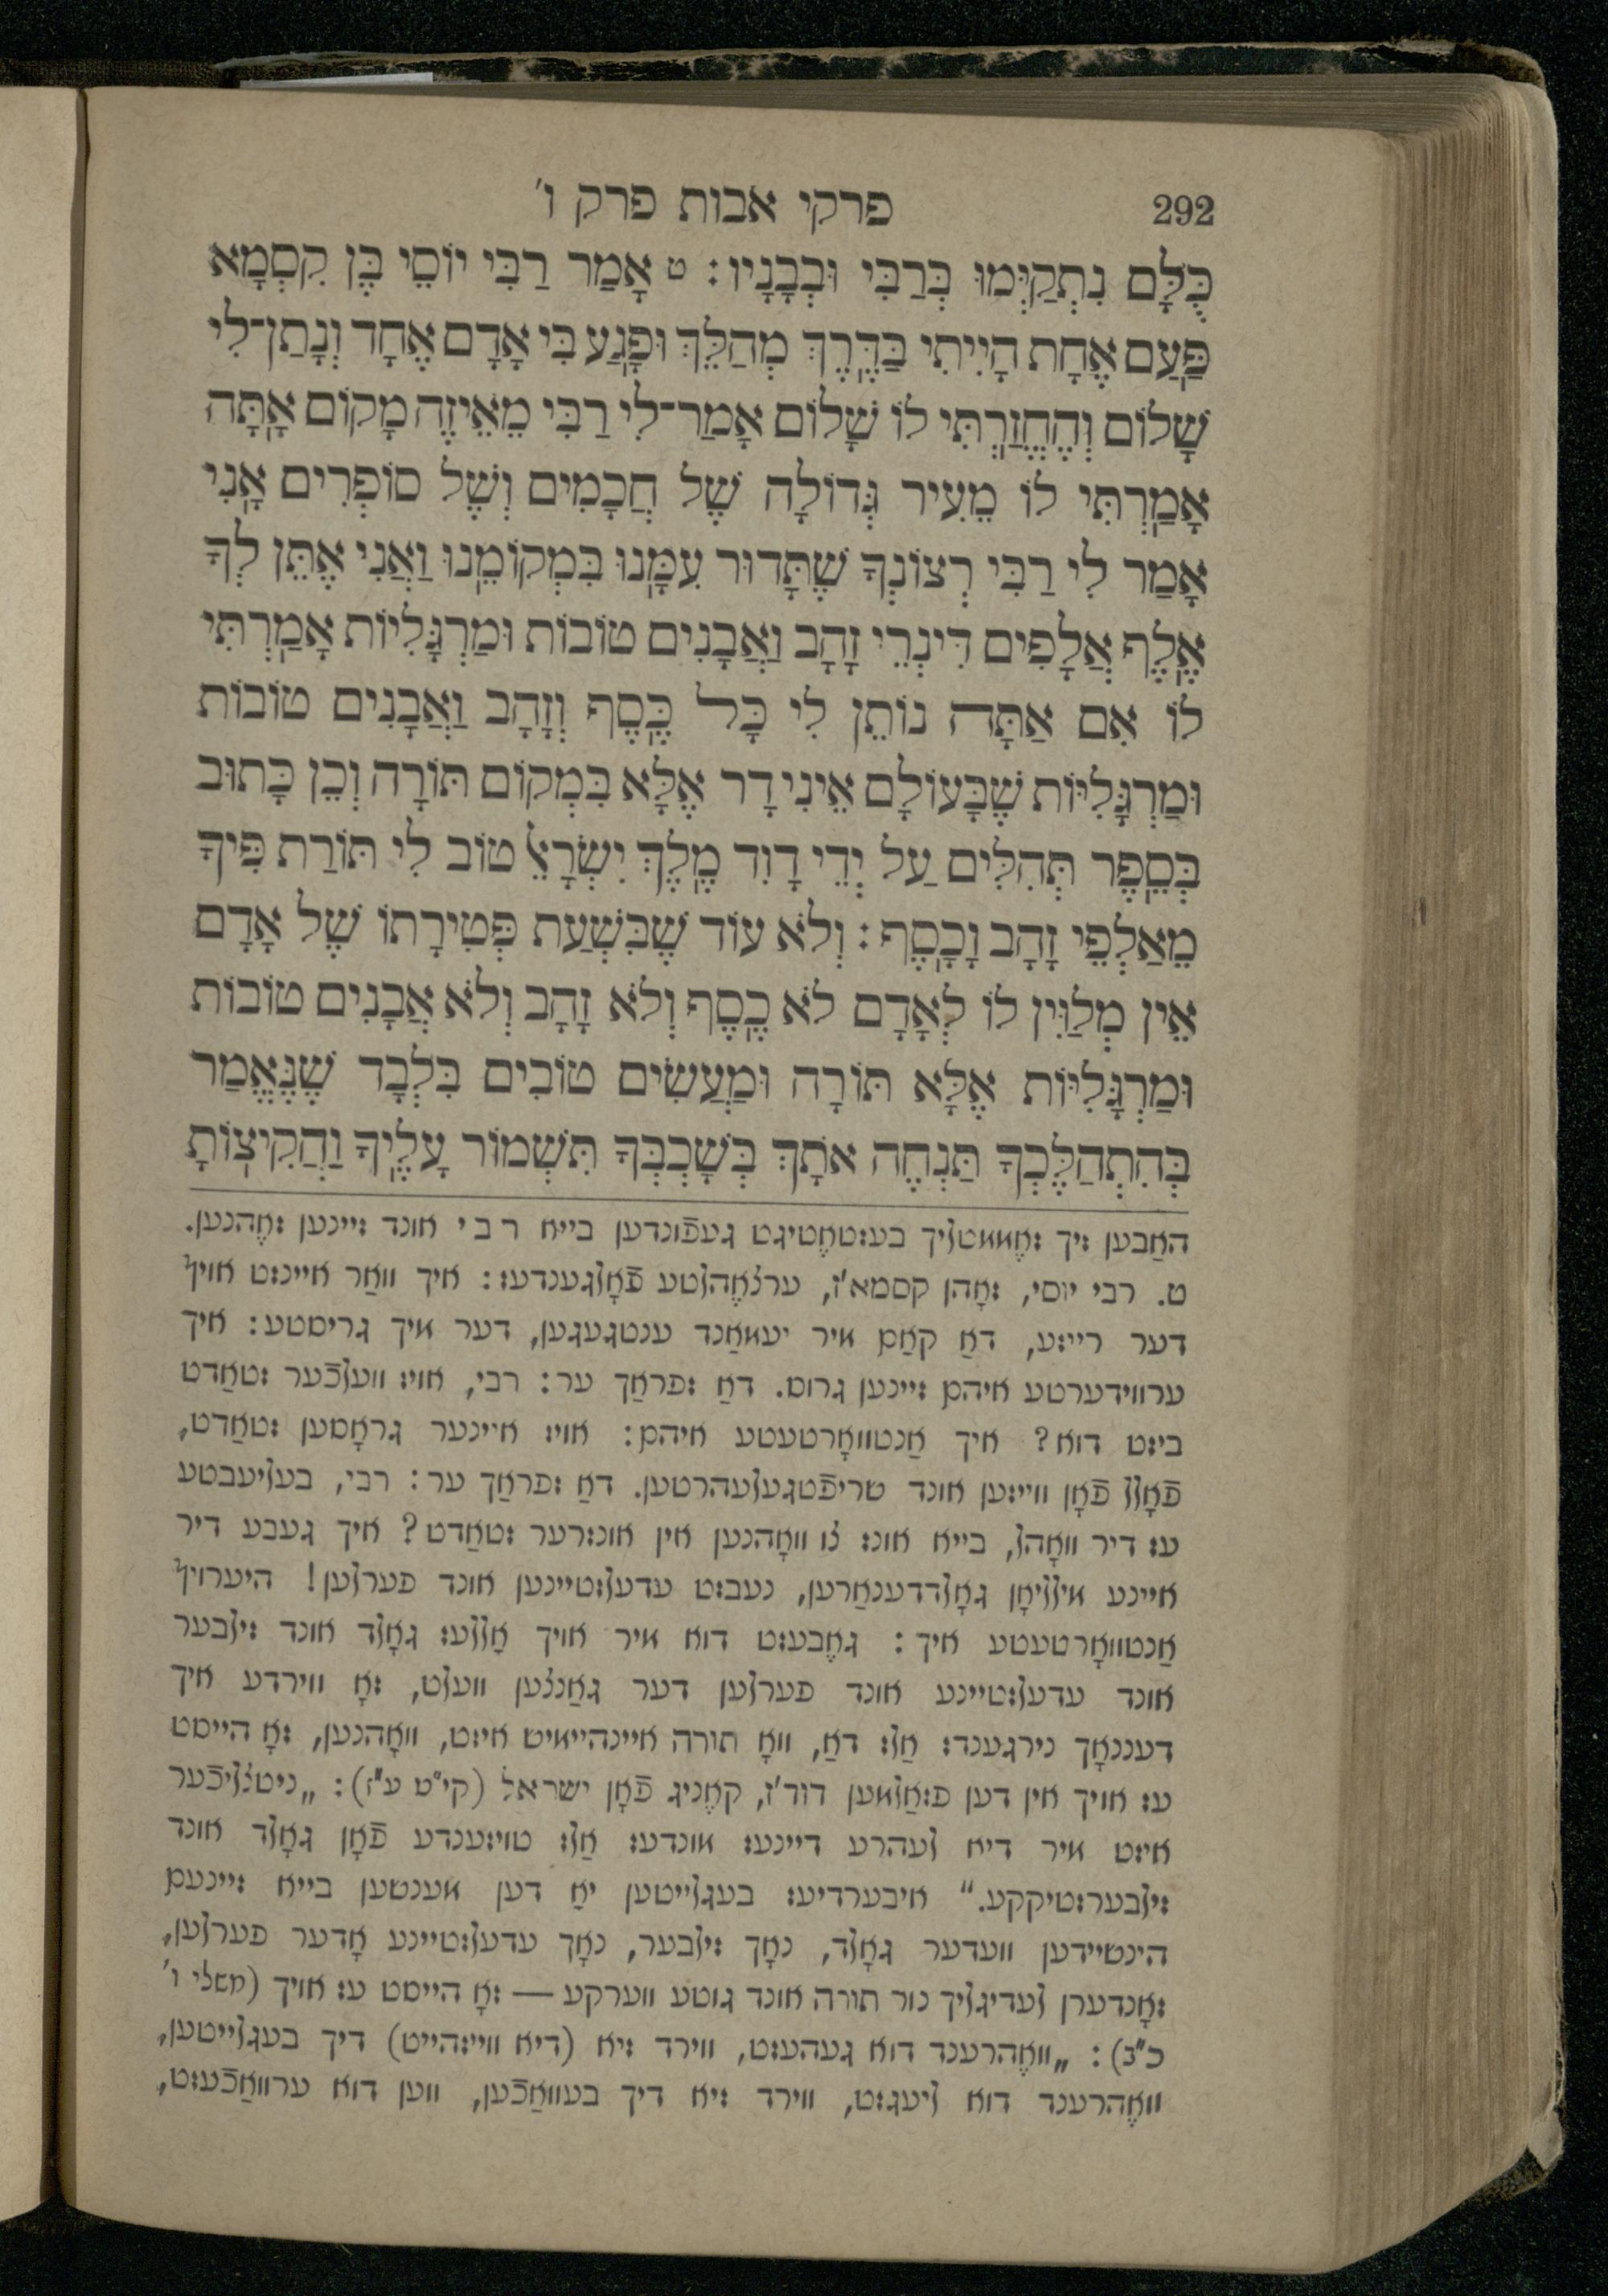 292 פרקי אבות פרק ו׳
כֻּלָּם נִתְקַיְּמוּ בְּרַבִּי וּבְבָנָיו: ט אָמַר רַבִּי יוֹסֵי בֶּן קִסְמָא
פַּעַם אֶחָת הָיִיתִי בַּדֶּרֶךְ מְהַלֵּךְ וּפָגַע בִּי אָדָם אֶחָד וְנָתַן־לִי
שָׁלוֹם וְהֶחֱזַרְתִּי לוֹ שָׁלוֹם אָמַר־לִי רַבִּי מֵאֵיזֶה מָקוֹם אָתָּה
אָמַרְתִּי לוֹ מֵעִיר גְּדוֹלָה שֶׁל חֲכָמִים וְשֶׁל סוֹפְרִים אָנִי
אָמַר לִי רַבִּי רְצוֹנְךָ שֶׁתָּדוּר עִמָּנוּ בִּמְקוֹמֵנוּ וַאֲנִי אֶתֵּן לְךָ
אֶלֶף אֲלָפִים דִּינְרֵי זָהָב וַאֲבָנִים טוֹבוֹת וּמַרְגָּלִיוֹת אָמַרְתִּי
לוֹ אִם אַתָּה נוֹתֵן לִי כָּל כֶּסֶף וְזָהָב וַאֲבָנִים טוֹבוֹת
וּמַרְגָּלִיּוֹת שֶׁבָּעוֹלָם אֵינִי דָר אֶלָּא בִּמְקוֹם תּוֹרָה וְכֵן כָּתוּב
בְּסֵפֶר תְּהִלִּים עַל יְדֵי דָוִד מֶלֶךְ יִשְׂרָאֵל טוֹב לִי תּוֹרַת פִּיךָ
מֵאַלְפֵי זָהָב וָכָסֶף: וְלֹא עוֹד שֶׁבִּשְׁעַת פְּטִירָתוֹ שֶׁל אָדָם
אֵין מְלַוִּין לוֹ לְאָדָם לֹא כֶסֶף וְלֹא זָהָב וְלֹא אֲבָנִים טוֹבוֹת
וּמַרְגָּלִיּוֹת אֶלָּא תּוֹרָה וּמַעֲשִׂים טוֹבִים בִּלְבָד שֶׁנֶּאֱמַר
בְּהִתְהַלֶּכְךָ תַּנְחֶה אֹתָךְ בְּשָׁכְבְּךָ תִּשְׁמוֹר עָלֶיךָ וַהֲקִיצוֹתָ
האַבען זיך זאֶממטליך בעזטאֶטיגט געפֿונדען בייא רבי אונד זיינען זאֶהנען.
ט. רבי יוסי, זאָהן קסמא'ז, ערצאֶהלטע פֿאָלגענדעז: איך וואַר איינזט אויף
דער רייזע, דאַ קאַם מיר יעמאַנד ענטגעגען, דער מיך גריסטע: איך
ערווידערטע איהם זיינען גרוס. דאַ זפראַך ער: רבי, אויז וועלכֿער זטאַדט
ביזט דוא? איך אַנטוואָרטעטע איהם: אויז איינער גראָסען זטאַדט,
פֿאָלל פֿאָן ווייזען אונד שריפֿטגעלעהרטען. דאַ זפראַך ער: רבי, בעליעבטע
עז דיר וואָהל, בייא אונז צו וואָהנען אין אונזרער זטאַדט? איך געבע דיר
איינע מילליאָן גאָלדדענאַרען, נעבזט עדעלזטיינען אונד פערלען! היערויף
אַנטוואָרטעטע איך: גאֶבעזט דוא מיר אויך אַללעז גאָלד אונד זילבער
אונד עדעלזטיינע אונד פערלען דער גאַנצען וועלט, זאָ ווירדע איך
דעננאָך נירגענדז אַלז דאַ, וואָ תורה איינהיימיש איזט, וואָהנען, זאָ הייסט
עז אויך אין דען פזאַלמען דוד'ז, קאֶניג פֿאָן ישראל (קי״ט ע״ז): „ניטצליכֿער
איזט מיר דיא לעהרע דיינעז מונדעז אַלז טויזענדע פֿאָן גאָלד אונד
זילבערזטיקקע.“ איבערדיעז בעגלייטען יאַ דען מענטען בייא זיינעם
הינשיידען וועדער גאָלד, נאָך זילבער, נאָך עדעלזטיינע אָדער פערלען,
זאָנדערן לעדיגליך נור תורה אונד גוטע ווערקע — זאָ הייסט עז אויך (משלי ו׳
כ״ב): „וואֶהרענד דוא געהעזט, ווירד זיא (דיא ווייזהייט) דיך בעגלייטען,
וואֶהרענד דוא ליעגזט, ווירד זיא דיך בעוואַכֿען, ווען דוא ערוואַכֿעזט,